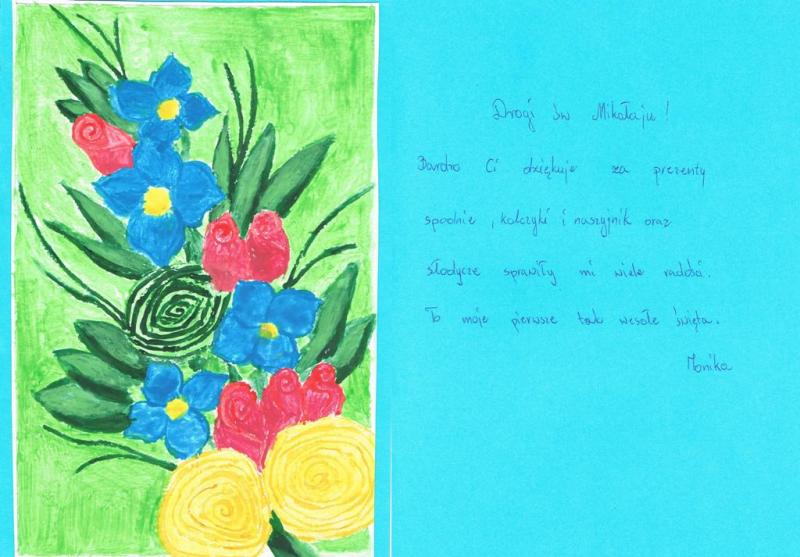 Drogi św Mikołaju!
Bardzo Ci dziękuje za prezenty
spodnie, kolczyki i naszyjnik oraz
słodycze sprawiły mi wiele radości.
To moje pierwsze tak wesołe święta.
Monika